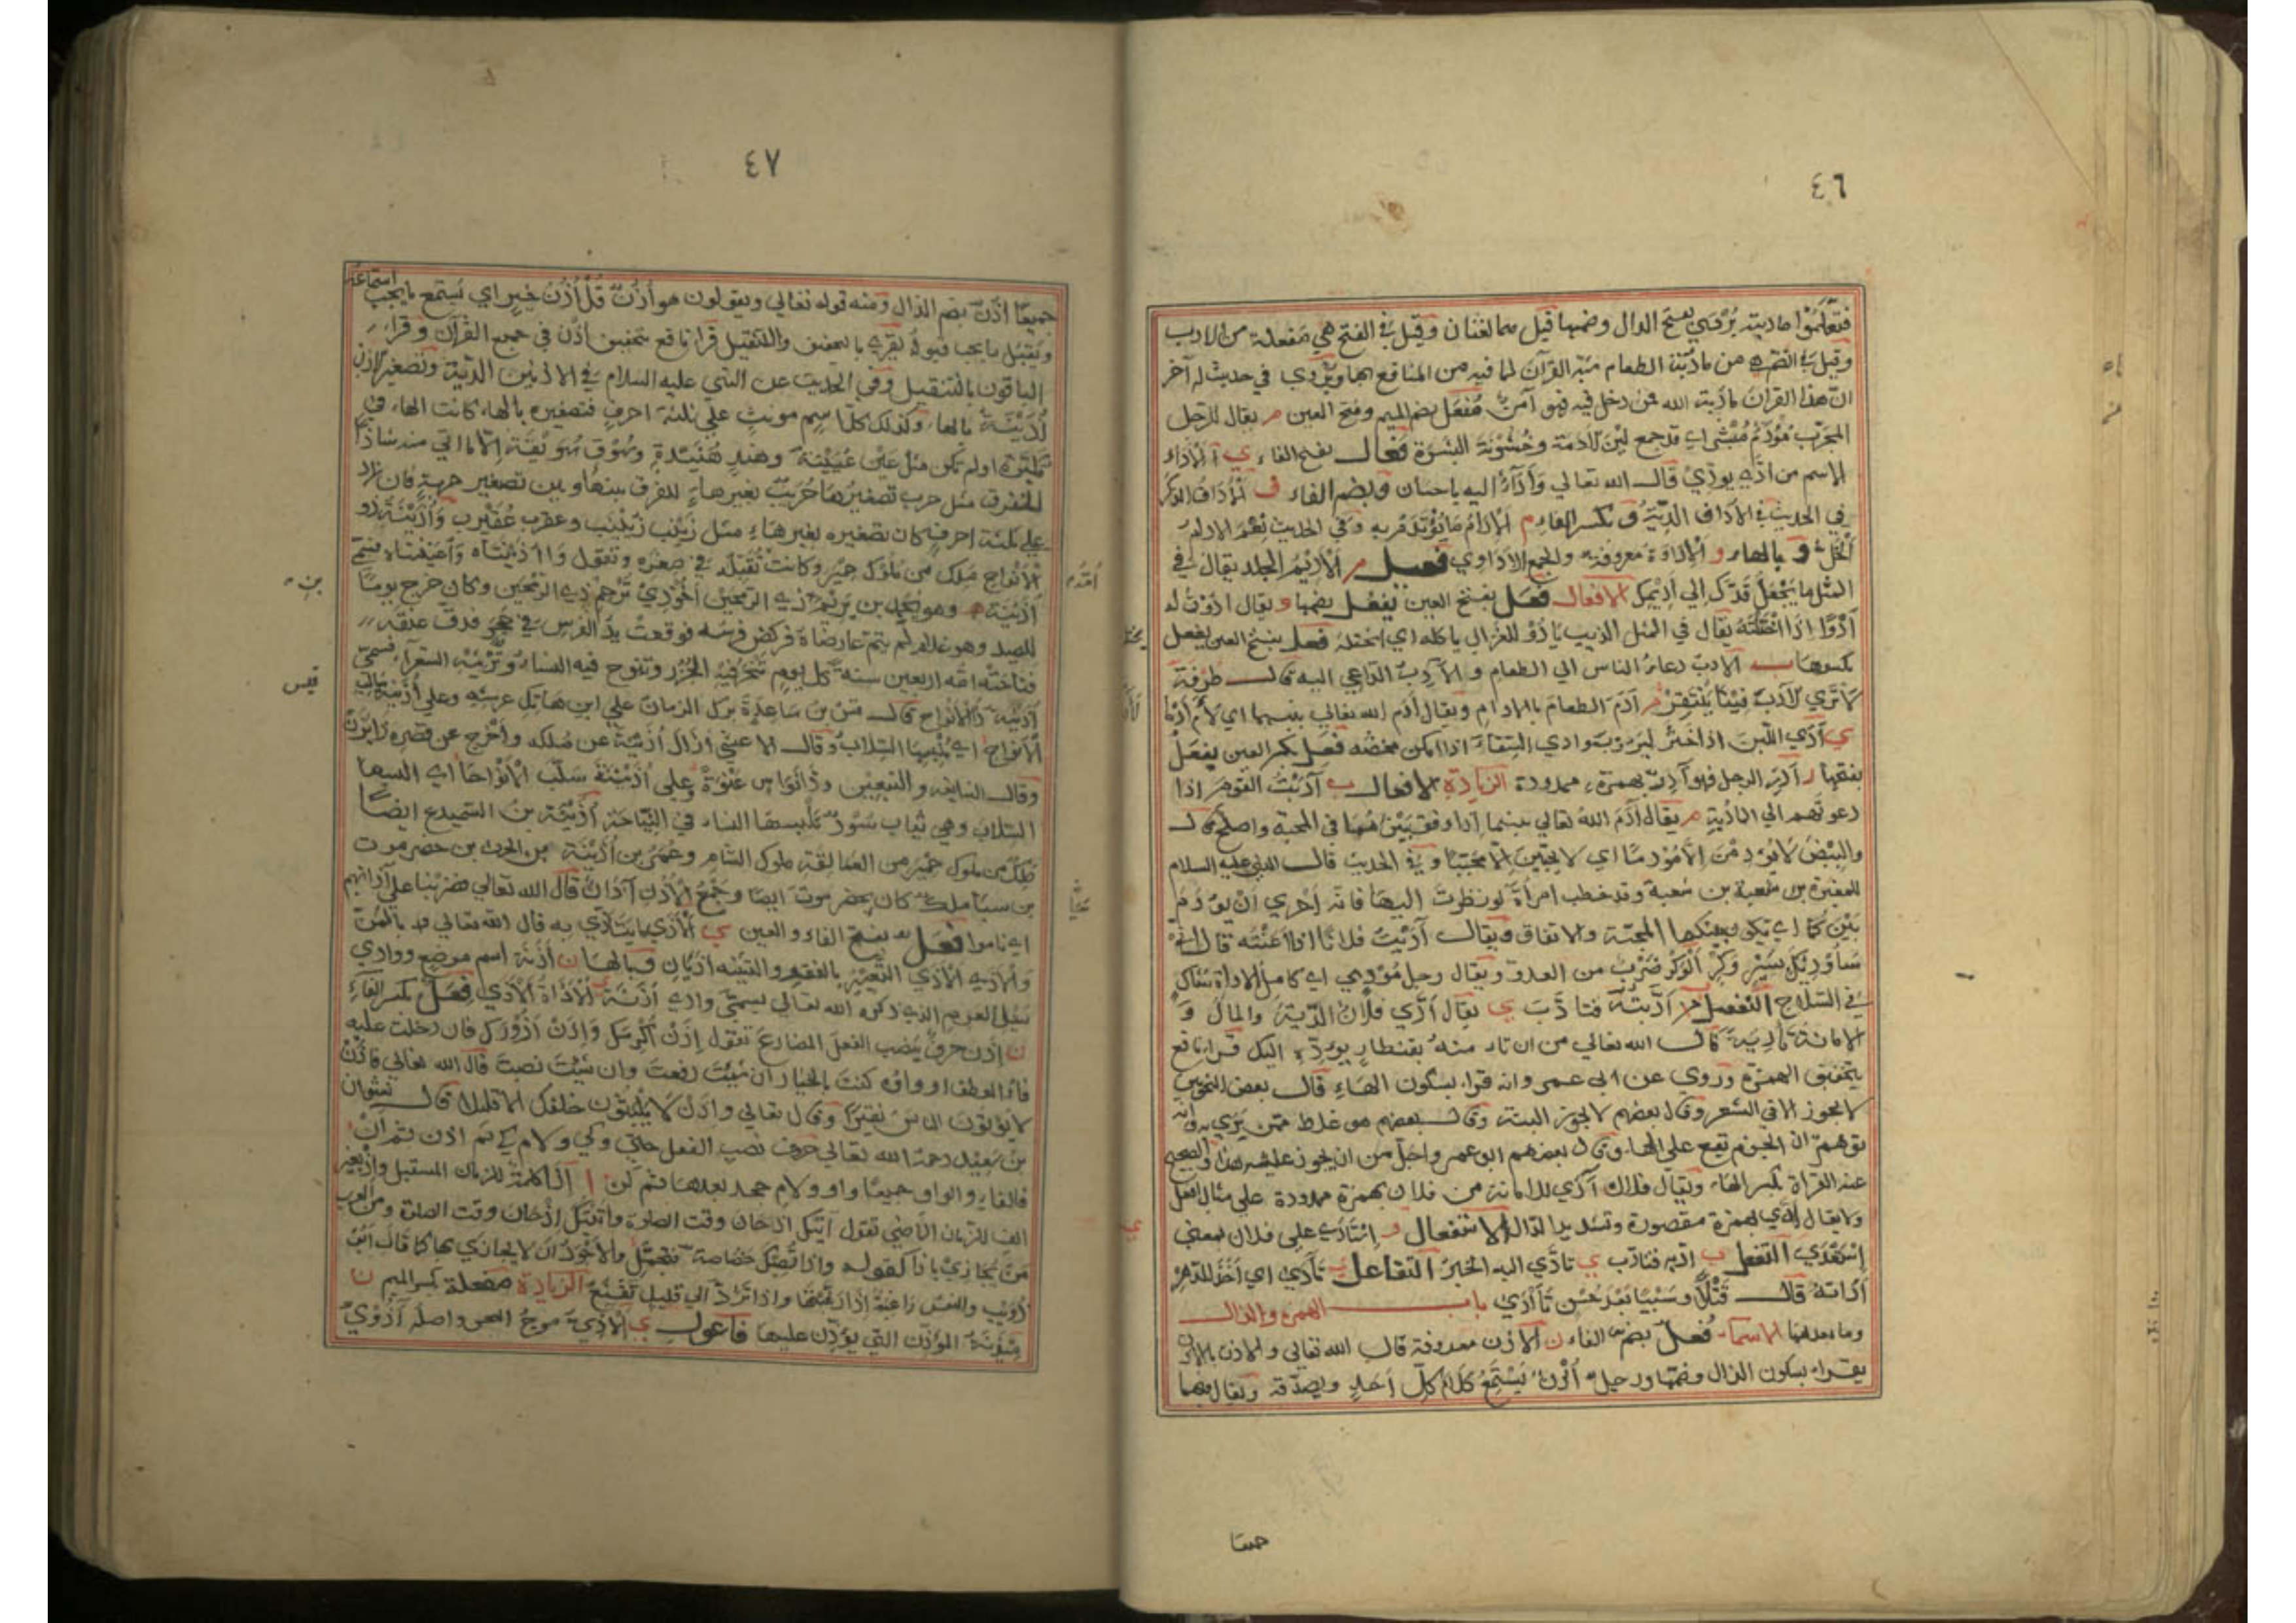 ٤٦
فتعلموا مادبته يروى بفتح الدال وضمها قيل هما لغتان وقيل في الفتح هي مفعلة من الادب
وقيل في الضم هي من مادبة الطعام شبه القرآن لما فيه من المنافع بها ويروي في حديث له آخر
ان هذا القرآن مأدبة الله فمن دخل فيه فهو آمن مفعل بضم الميم وفتح العين م يقال للرجل
المجرب مؤدم مبشر اي قد جمع لين الأدمة وخشونة البشرة فعال بفتح الفاء ي الأداء
الاسم من ادي يودي قال الله تعالي وأداء اليه باحسان وبضم الفاء ف الأداف الذكر
في الحديث في الاداف الدية و بكسر الفاء م الإدام ما يؤتدم به وفي الحديث نعم الادام
الخل و بالهاء و الإداوة معروفة والجمع الأداوي فعيل م الأديم الجلد يقال في
المثل ما يجعل قدك إلي أديمك الافعال فعل بفتح العين يفعل بضمها و يقال ادوت له
أدوا إذا ختلته يقال في المثل الذيب يأدو للغزال يأكله اي يختله فعل بفتح العين يفعل
بكسرها ب الادب دعاء الناس الي الطعام و الآدب الداعي اليه قال طرفة
لا تري الآدب فينا ينتقر م أدم الطعام بالادام ويقال أدم الله تعالي بينهما اي لأم أدما
ي أدي اللبن اذا خثر ليروب وادي السقاء اذا امكن مخضه فعل بكسر العين يفعل
بفتحها ر أدر الرجل فهو آدر بهمزة ممدودة الزيادة الافعال ب آدبت القوم اذا
دعوتهم الي المأدبة م يقال آدم الله تعالي بينهما إذا وفق بينهما في المحبة واصلح قال
والبيض لا يؤدمن إلا مؤدما اي لا يحببن إلا محببا و في الحديث قال النبي عليه السلام
للمغيرة بن شعبة وقد خطب امرأة لو نظرت اليها فانه احري أن يؤدم
بينكما اي تكون بينكما المحبة والاتفاق ويقال آديت فلانا اذا اعنته قال
من العدو ويقال رجل مؤدي اي كامل الاداة شاك
في السلاح التفعيل ب أدبته فتأدب ي يقال أدي فلان الدية والمال و
الامانة تأدية قال الله تعالي من ان تأمنه بقنطار يؤده اليك قرأ نافع
بتخفيف الهمزة وروي عن ابي عمرو انه قرا بسكون الهاء قال بعض النحويين
لا يجوز الا في الشعر وقال بعضهم لا يجوز البتة وقال بعضهم هو غلط ممن يروي به وانه
توهم ان الجزم يقع علي الهاء وقال بعضهم ابو عمرو اجل من ان يجوز عليه هذا والصحيح
عنه القراة بكسر الهاء ويقال فلان آدي للامانة من فلان بهمزة ممدودة علي مثال افعل
ولا يقال أدي بهمزة مقصورة وتشديد الدال الاستفعال و إستأدي علي فلان بمعني
إستعدي التفعل ب ادبه فتادب ي تأدي اليه الخبر التفاعل ي تآدي اي أخذ للدهر
أداته قال قتلا وسبيا بعد حسن تآدي باب الهمزة والذال
وما بعدهما الاسماء فعل بضم الفاء ن الاذن معروفة قال الله تعالي والاذن بالاذن
يقراء بسكون الذال وضمها ورجل أذن يستمع كلام كل أحد ويصدقه ويقال فيهما
جميعا
٤٧
جميعا اذن بضم الذال ومنه قوله تعالي ويقولون هو أذن قل أذن خير اي يستمع ما يجب استماعه
ويقبل ما يجب قبوله يقرء بالتخفيف والتثقيل قرا نافع بتخفيف اذن في جميع القرآن وقراء
الباقون بالتثقيل وفي الحديث عن النبي عليه السلام في الاذنين الدية وتصغير الاذن
أذينة بالهاء وكذلك كل اسم مونث علي ثلثة احرف فتصغيره بالهاء كانت الهاء في
تكبيره اولم تكن مثل عين عيينة وهند هنيدة وسوق سويقة إلا ما اتي منه شاذا
للفرق مثل حرب تصغيرها حريب بغير هاء للفرق بينها وبين تصغير حربة فان زاد
علي ثلثة احرف كان تصغيره بغير هاء مثل زينب زيينب وعقرب عقيرب وأذينة ذو
الأنواح ملك من ملوك حمير وكانت
أذينة وهو بن يريم ذي الرمحين ترحم ذي الرمحين وكان خرج يوما
للصيد وهو غلام فركض فرسه فوقعت يد الفرس في جحر فدق عنقه
فناحته امه اربعين سنة كل يوم تنحر فيه الجزر وتنوح فيه النساء وترثيه الشعراء فسمي
أذينة ذا الأنواح قال قس بن ساعدة برك الزمان علي ابن هاتك عرشه وعلي أذينة سالب
الأنواح اي السلاب وقال الاعشي ازال أذينة عن ملكه وأخرج عن قصره ذا يزن
وقال وعلي أذينة سلب الأنواحا اي
السلاب وهي ثياب سود تلبسها النساء في النياحة أذينة بن السميدع ايضا
ملك من ملوك حمير من العمالقة ملوك الشام وعمرو بن أذينة بن الحرث بن حضرموت
بن سبا ملك كان بحضرموت ايضا وجمع الأذن آذان قال الله تعالي فضربنا علي آذانهم
اي ناموا فعل بفتح الفاء والعين ي الأذي ما يتاذي به قال الله تعالي بالمن
والاذي الاذي التعيير بالفقر والتثنية اذيان وبالهاء ن أذنة اسم موضع ووادي
سيل العرم الذي ذكره الله تعالي يسمي وادي أذنة الأذاة الأذي فعل بكسر الفاء
ن إذن حرف ينصب الفعل المضارع تقول إذن أكرمك وإذن أزورك فان دخلت عليه
فاء العطف او واوه كنت بالخيار ان شئت رفعت وان شئت نصبت قال الله تعالي فاذن
لا يؤتون الناس نقيرا وقال تعالي واذن لا يلبثون خلفك الا قليلا قال نشوان
بن سعيد رحمه الله تعالي حروف نصب الفعل حتي وكي ولام كي ثم اذن ثم أن
فالفاء والواو جميعا واو ولام جحد بعدها ثم لن ا إذا كلمة للزمان المستقبل وإذ بغير
الف للزمان الماضي تقول آتيك اذا حان وقت الصلوة وأتيتك إذ حان وقت الصلوة ومن العرب
من يجازي باذا كقوله واذا تصبك خصاصة فتجمل والأجود ان لا يجازي بها كما قال أبو
ذويب والنفس راغبة إذا رغبتها واذا ترد الي قليل تقنع الزيادة مفعلة بكسر الميم ن
مئذنة المؤذن التي يؤذن عليها فاعول ي الآذي موج البحر واصله آذوي
أقدم
قيس